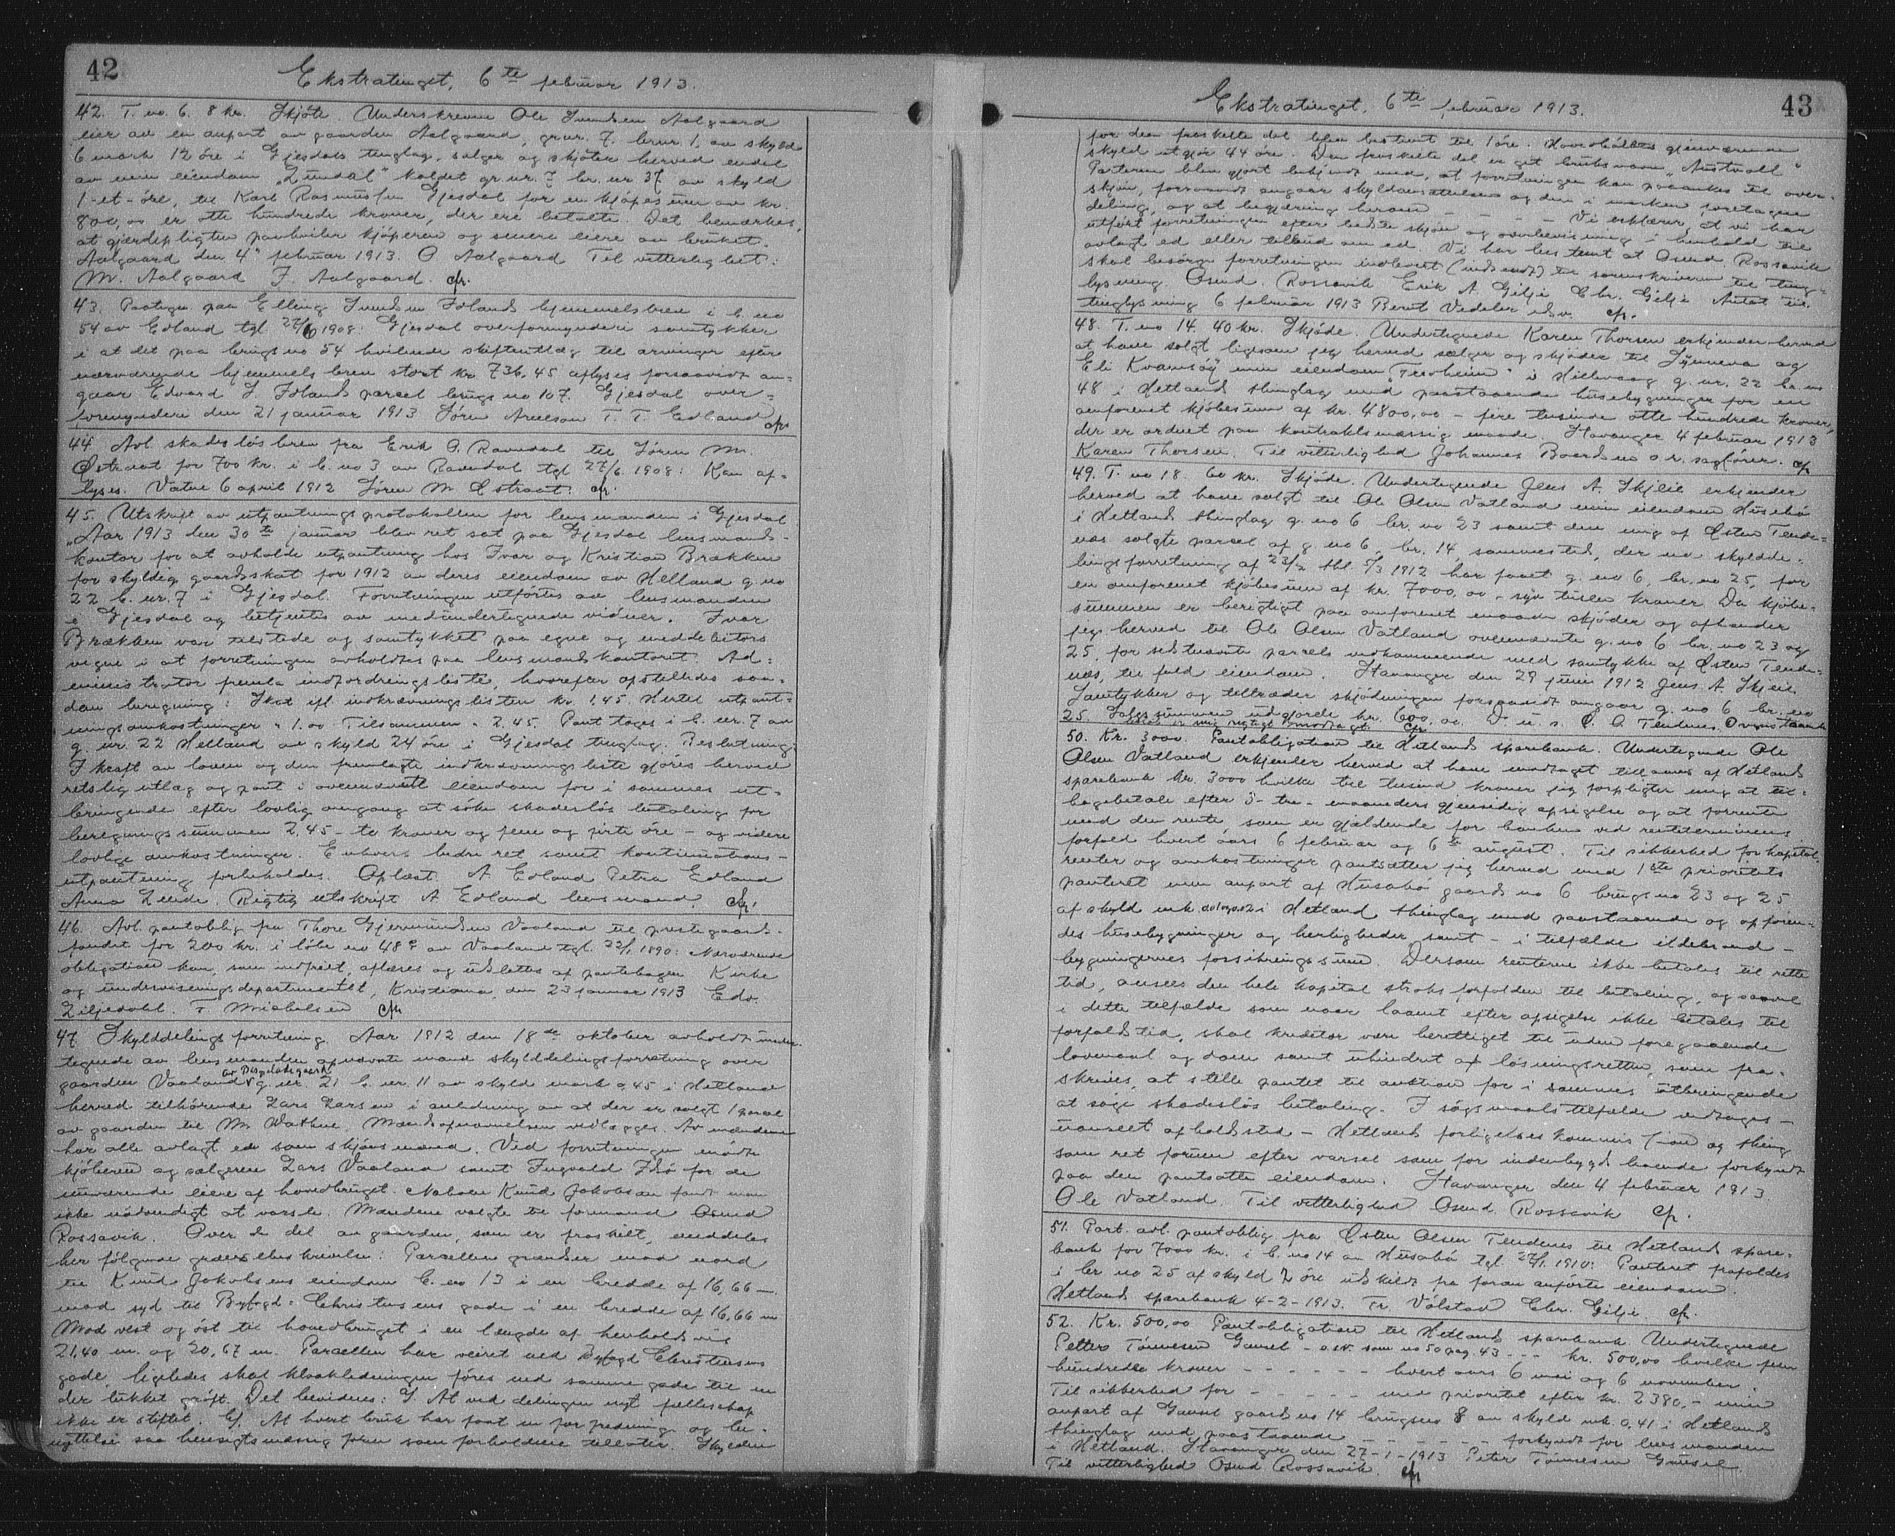 42
Ekstratinget, 6te februar 1913.
42. T. no. 6. 8 kr. Skjøte. Underskrevne Ole Svendsen Aalgaard
eier av en anpart av gaarden Aalgaard, gr.nr. 7. br.nr. 1, av skyld
6 mark 12 øre i Gjesdals tinglag, sælger og skjøter herved endel
av min eiendom „Lundal" kaldet gr. nr. 7 br. nr 37 av skyld
1-et-øre, til Karl Rasmussen Gjesdal for en kjøpesum av kr.
800,00 er otte hundrede kroner, der ere betalte. Det bemærkes,
at gjærdepligten paahviler kjøperen og senere eiere av bruket.
Aalgaard den 4de februar 1913. O Aalgaard Til vitterlighet:
M. Aalgaard J. Aalgaard. cfr.
43. Paategn paa Elling Svendsen Edlands hjemmelsbrev i b. no
54 av Edland tgl 27/6 1908: Gjesdal overformynderi samtykker
i at det paa bruges no 54 hvilende skifteutlæg til arvinger efter
nærværende hjemmelsbrev stort kr. 736,45 aflyses forsaavidt an-
gaar Edvard S. Edlands parcel bruges no 107. Gjesdal over-
formynderi den 21 januar 1913 Søren Auelsen T. T. Edland cfr
44. Avl. skadesløsbrev fra Erik O. Ravndal til Søren M.
Østraat for 700 kr. i b. no 3 av Ravndal tgl 27/6 1908: Kan af-
lyses. Vatne 6 april 1912 Søren M Østraat: cfr.
45. Utskrift av utpantningsprotokollen for lensmanden i Gjesdal
„Aar 1913 den 30te januar blev ret sat paa Gjesdal lensmands-
kontor for at avholde utpantning hos Ivar og Kristian Brækken
for skyldig gaardsskat for 1912 av deres eiendom av Helland g. no
22 b. nr. 7 i Gjesdal. Forretningen utførtes av lensmanden
i Gjesdal og betjentes av medundertegnede vidner. Ivar
Brækken var tilstede og samtykket paa egne og meddebitors
vegne i at forretningen avholdtes paa lensmandskontoret. Ad-
ministrator fremla indfordringsliste, hvorefter opstilledes saa-
dan beregning: Skat ifl. indkrævningslisten kr. 1,45 Hertil utpant-
ningsomkostninger " 1.00 Tilsammen " 2,45. Pant toges i b. nr. 7 av
g. nr. 22 Helland av skyld 24 øre i Gjesdal tinglag. Beslutning:
I kraft av loven og den fremlagte indkrævningsliste gjøres herved
retslig utlæg og pant i ovennævnte eiendom for i sammes ut-
bringende efter lovlig omgang at søke skadesløs betaling for
beregningssummen 2,45 - to kroner og fem og firti øre - og videre
lovlige omkostninger. Enhvers bedre ret samt kontinuations-
utpantning forbeholdes. Oplæst. A Edland Petra Edland
Anna Lende. Rigtig utskrift A Edland lensmand. cfr.
46. Avl. pantoblig. fra Thore Gjermundsen Vaaland til prestegaards-
fondet for 200 kr. i løbe no 48 e av Vaaland tgl. 22/1 1890: Nærværende
obligation kan, som indfriet, aflæses og udslettes af pantebogen Kirke
og undervisningsdepartementet, Kristiania, den 23 januar 1913 Edv.
Liljedahl. T. Michelsen cfr.
47. Skylddelingsforretning. Aar 1912 den 18de oktober avholdt under-
tegnede av lensmanden opnævnte mænd skylddelingsforretning over
gaarden Vaaland av Bispeladegaard g. nr. 21 b. nr. 11 av skyld mark 0,45 i Hetland
herred tilhørende Lars Larsen i anledning av at der er solgt 1 parcel
av gaarden til M. Wathne. Mændsopnævnelsen vedlægges. Av mændene
har alle avlagt ed som skjønsmænd. Ved forretningen mødte
kjøberen og sælgeren Lars Vaaland samt Ingvald Isø for de
nuværende eiere af hovedbruget. Naboen Knud Jakobsen fandt man
ikke nødvendigt at varsle. Mændene valgte til formand Osmund
Rossavik. Over de del av gaarden, som er fraskilt, meddeles
her følgende grænsebeskrivelse: Parcellen grænser mod nord
til Knud Jakobsens eiendom b. no 13 i en bredde af 16,66 m
mod syd til Byfogd-Christensens gade i en bredde af 16,66 m
Mod vest og øst til hovedbruget i en længde af henholdsvis
21,40 m. og 20,67 m. Parcellen har veiret ved Byfogd Christensens
gade, ligeledes skal kloakledningen føres ned samme gade til en
der lukket grøft. Det bevidnes: I. At ved delingen nyt fællesskap
ikke er stiftet. II. At hvert bruk har faat en for fredning og be-
nyttelse saa hensigtsmæssig form som forholdene tillater. Skylden
43
Ekstratinget, 6te februar 1913.
for den fraskilte del blev bestemt til 1 øre. Hovedbølets gjenværende
skyld utgjør 44 øre. Den fraskilte del er git bruksnavn „Austvoll"
Parterne blev gjort bekjendt med, at forretningen kan paaankes til over-
skjøn, forsaavidt angaar skyldansættelsen og den i marken foretagne
deling, og at begjæring herom - - - - Vi erklærer, at vi har
utført forretningen efter bedste skjøn og overbevisning i henhold til
avlagt ed eller tilbud om ed. Vi har bestemt at Osmd. Rossavik
skal besørge forretningen indlevert (indsendt) til sorenskriveren til ting-
lysning Osmd. Rossavik Erik A. Gilje Chr. Gilje Antat til
tinglysning 6 februar 1913 Bernt Vedeler e.bm. cfr.
48. T. no 14. 40 kr. Skjøde. Undertegnede Karen Thorsen erkjender herved
at have solgt ligesom jeg herved sælger og skjøder til Synneva og
Eli Kvamsøy min eiendom „Trovheim" i Hillevaag g. nr. 22 br. no
48 i Hetland thinglag med paastaaende husebygninger for en
omforenet kjøbesum af kr. 4800,00 - fire tusinde otte hundrede kroner,
der er ordnet paa kontraktsmæssig maade. Stavanger 4 februar 1913
Karen Thorsen. Til vitterlighed Johannes Boardsen o.r. sagfører. cfr
49. T. no 18. 60 kr. Skjøde. Undertegnede Jens A. Skjeie erkjender
herved at have solgt til Ole Olsen Vatland min eiendom Husebø
i Hetland thinglag g. no 6 br. no 23 samt den mig af Østen Tende-
næs solgte parsel af g. no 6, br. 14, sammesteds, der ved skylddel-
lingsforretning af 23/2 tbl. 5/3 1912 har faaet g. no 6, br. no 25, for
en omforenet kjøbesum af kr. 7000,00 - syv tusen kroner. Da kjøbe-
summen er berigtiget paa omforenet maade skjøder og afhænder
jeg herved til Ole Olsen Vatland ovennævnte g. no 6 br. no 23 og
25, for sidstnævnte parsels vedkommende med samtykke af Østen Tende-
næs, til fuld eiendom. Stavanger den 29 juni 1912 Jens A. Skjeie
Samtykker og tiltræder skjødningen forsaavidt angaar g. no 6 br. no
25. Salgssummen udgjorde kr. 600,00. D. u. s. O. O Tendenes.
50. Kr. 3000. Pantobligation til Hetlands sparebank. Undertegnede Ole
Olsen Vatland erkjender herved at have modtaget tillaans af Hetland
sparebank kr. 3000 hvilke tre tusind kroner jeg forpligter mig at til-
bagebetale efter 3- tre - maaneders gjensidig opsigelse og at forrente
med den rente, som er gjældende for banken ved renteterminens
forfald hvert aars 6 februar og 6te august. Til sikkerhed for kapital,
renter og omkostninger pantsætter jeg herved med 1ste prioritets
panteret min anpart af Husabø gaards no 6 brugs no 23 og 25
af skyld mk. i Hetland thinglag med paastaaende og opføren-
des husebygninger og herligheder samt - i tilfælde ildebrand -
bygningernes forsikringssum. Dersom renterne ikke betales til rette
tid, ansees den hele kapital straks forfalden til betaling, og saavel
i dette tilfælde som naar laanet efter opsigelse ikke betales til
forfaldstid, skal kreditor være berettiget til uden foregaaende
lovmaal og dom samt uhindret af løsningsretten, som fra-
skrives, at stille pantet til auktion for i sammes utbringende
at søge skadesløs betaling. I søgsmaalstilfælde vedtages -
uanseet opholdssted - Hetlands forligelseskommission og thing
som ret forum efter varsel som for indenbygds boende forkyndt
paa den pantsatte eiendom. Stavanger den 4 februar 1913
Ole Vatland. Til vitterlighed Osmd. Rossavik cfr.
51. Part. avl. pantoblig fra Østen Olsen Tendenes til Hetland spare-
bank for 7000 kr. i b. no 14 av Husabø tgl. 27/1. 1910: Panteret frafaldes
i br no 25 af skyld 2 øre udskildt fra foran anførte eiendom.
Hetland sparebank 4-2-1913. Tr. Vølstad Chr. Gilje. cfr.
52. Kr. 500,00 Pantobligation til Hetland sparebank Undertegnede
Petter Tønnesen Gausel - o.s.v. som no 50 pag. 43 - - - kr. 500,00 hvilke fem
hundrede kroner - - - - - - hvert aars 6 mai og 6 november.
Til sikkerhed for - - - - - med prioritet efter kr. 2380,- min
anpart af Gausel gaards no 14 brugsno 8 av skyld mk. 0,41 i Hetlands
thinglag med paastaaende - - - - - - forkyndt for lensmanden
i Hetland. Stavanger den 27-1-1913 Peter Tønnesen Gausel.
Til vitterlighed Osmd. Rossavik. cfr